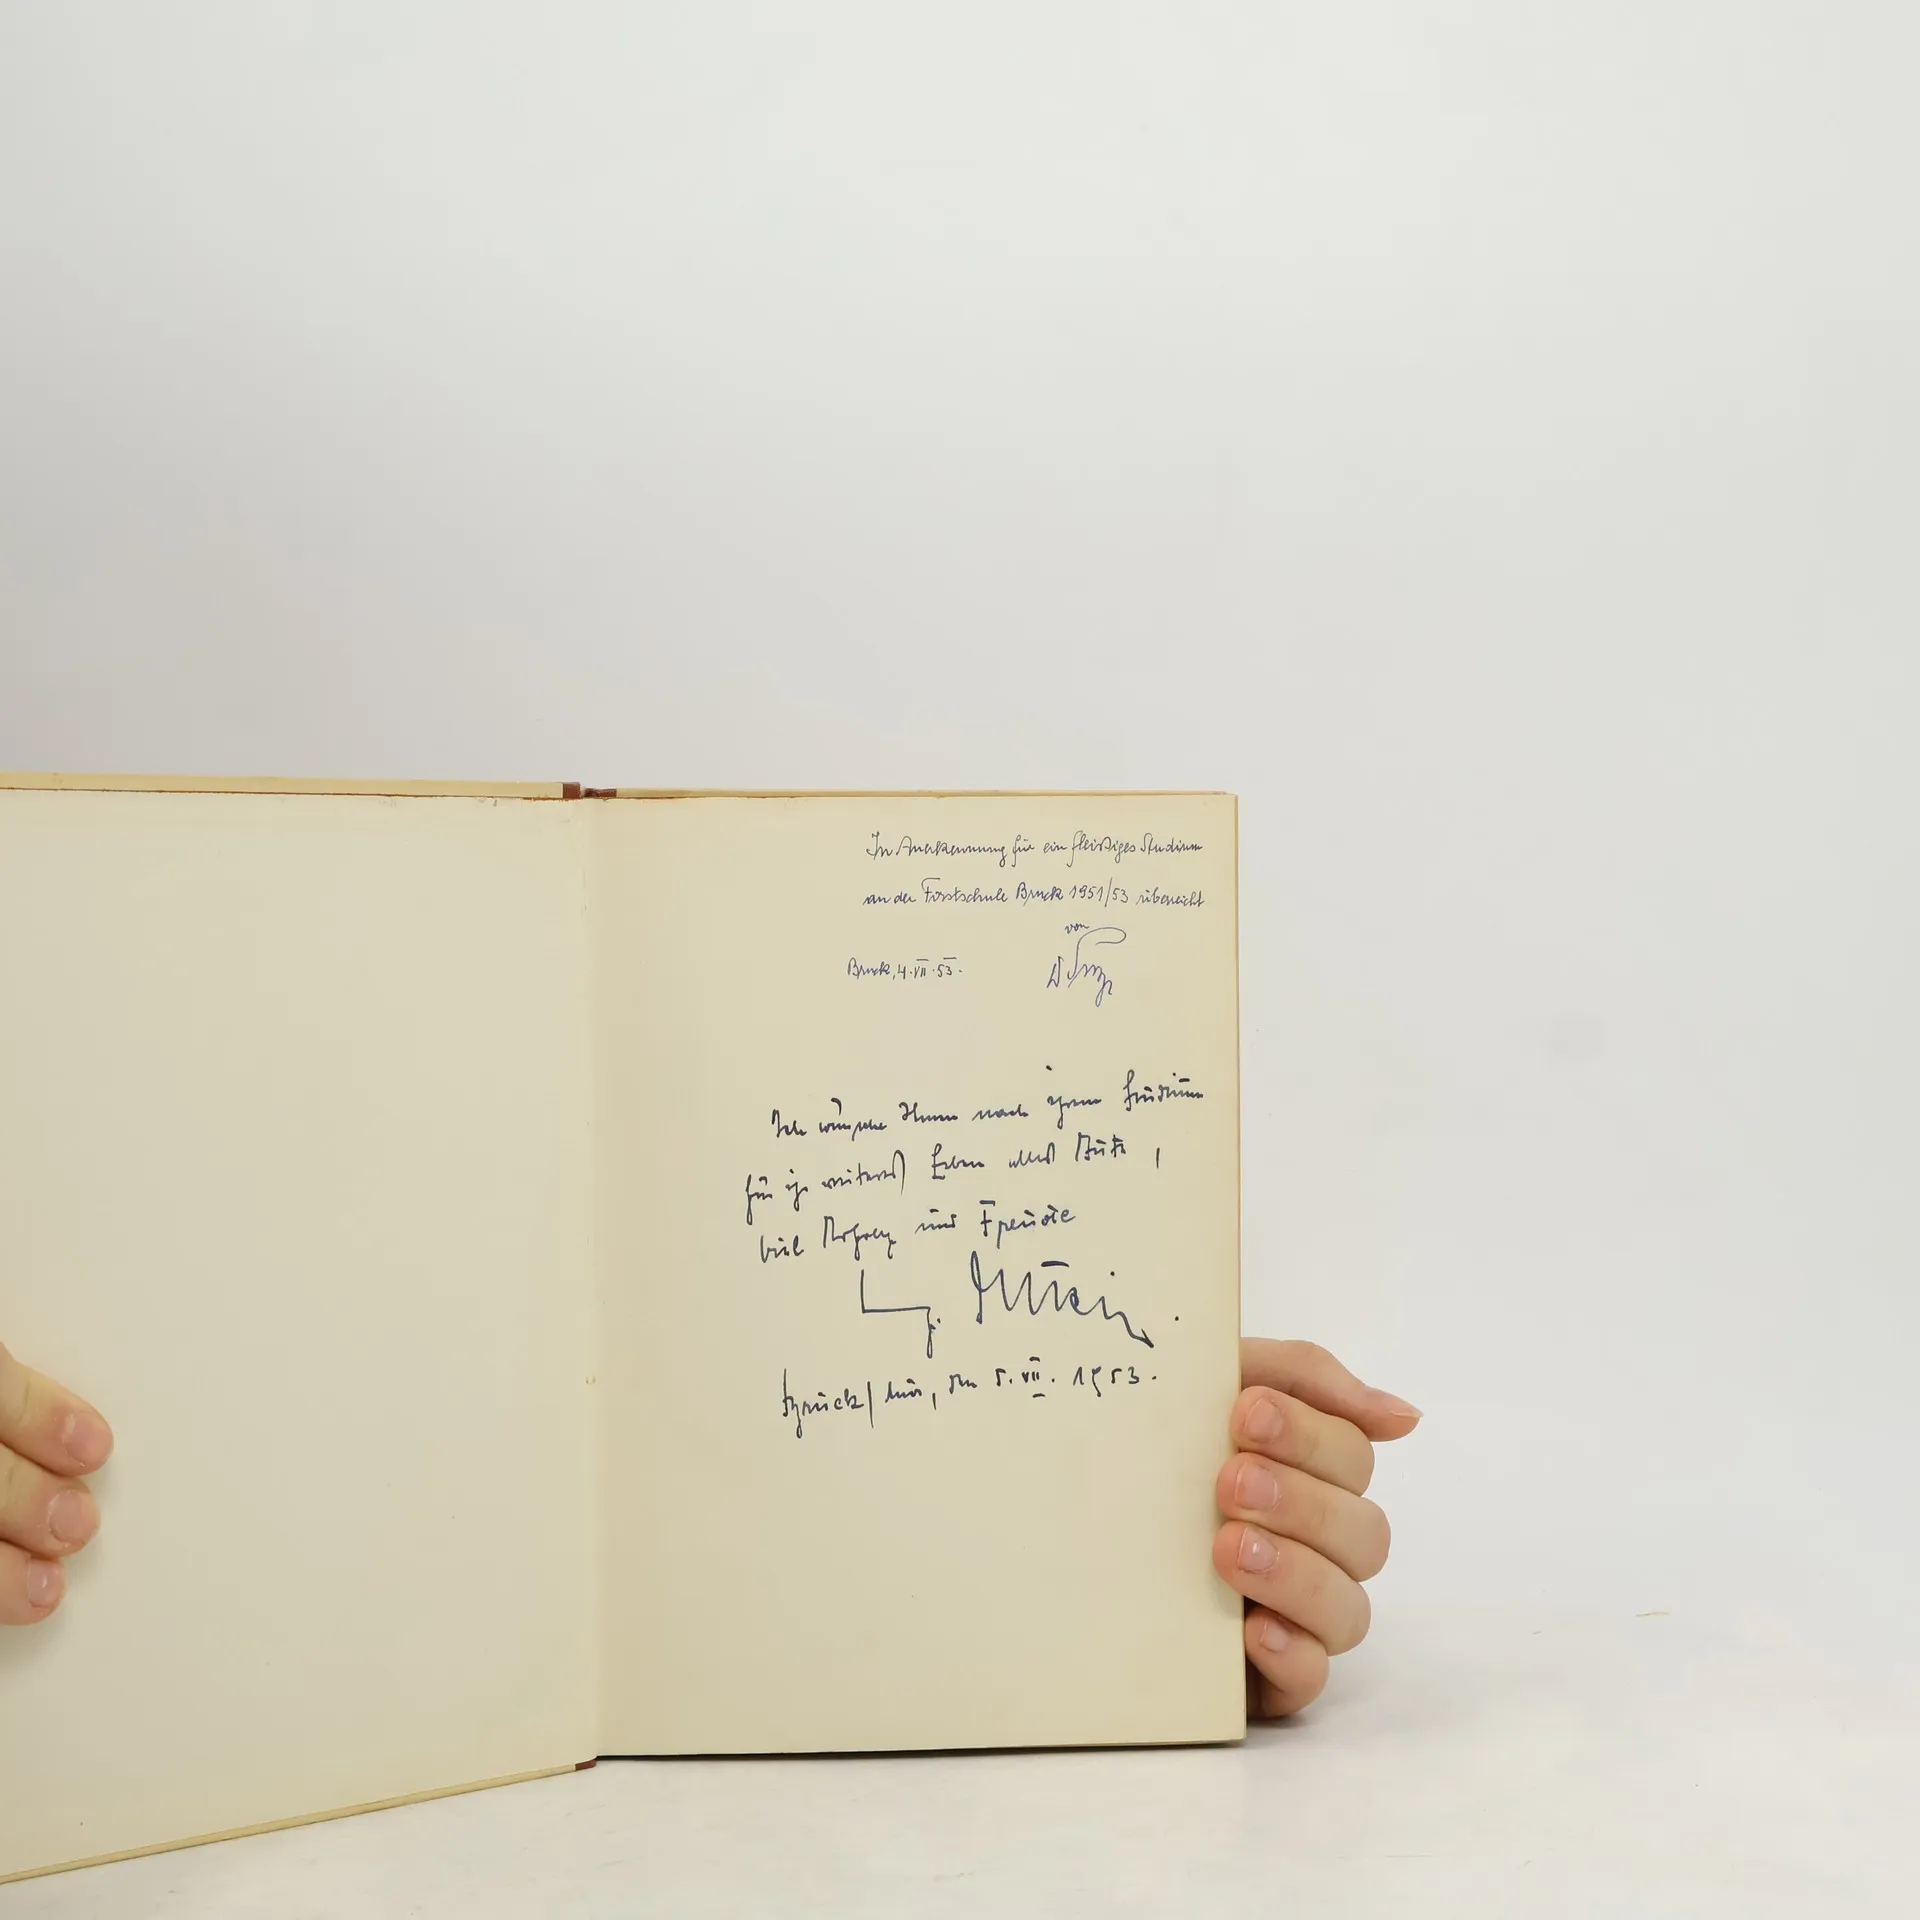 In Anerkennung für ein fleißiges Studium
an der Forstschule Bruck 1951/53 überreicht
von
Bruck, 4.VII.53.
Ich wünsche Ihnen nach Ihrem Studium
für Ihr weiteres Leben alles Gute,
viel Erfolg und Freude
Bruck/Mur, den 5.VII.1953.